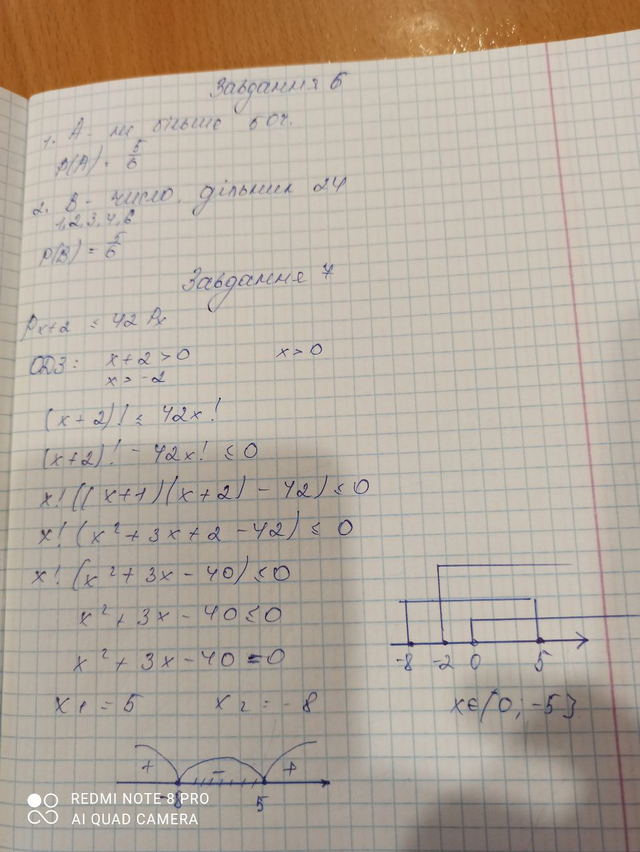 Завдання 6
1. А - не більше 5 оч.
P(A) = 5/6
2. В - число, дільник 24
1,2,3,4,6
P(B) = 5/6
Завдання 7
Px+2 ≤ 42 Px
ОДЗ: x+2>0 x>0
x>-2
(x+2)! ≤ 42x!
(x+2)! - 42x! ≤ 0
x!((x+1)(x+2) - 42) ≤ 0
x!(x²+3x+2-42) ≤ 0
x!(x²+3x-40) ≤ 0
x²+3x-40 ≤ 0
x²+3x-40=0
-8 -2 0 5
x1=5 x2=-8
x∈(0;-5}
+ - +
-8 5
REDMI NOTE 8 PRO
AI QUAD CAMERA